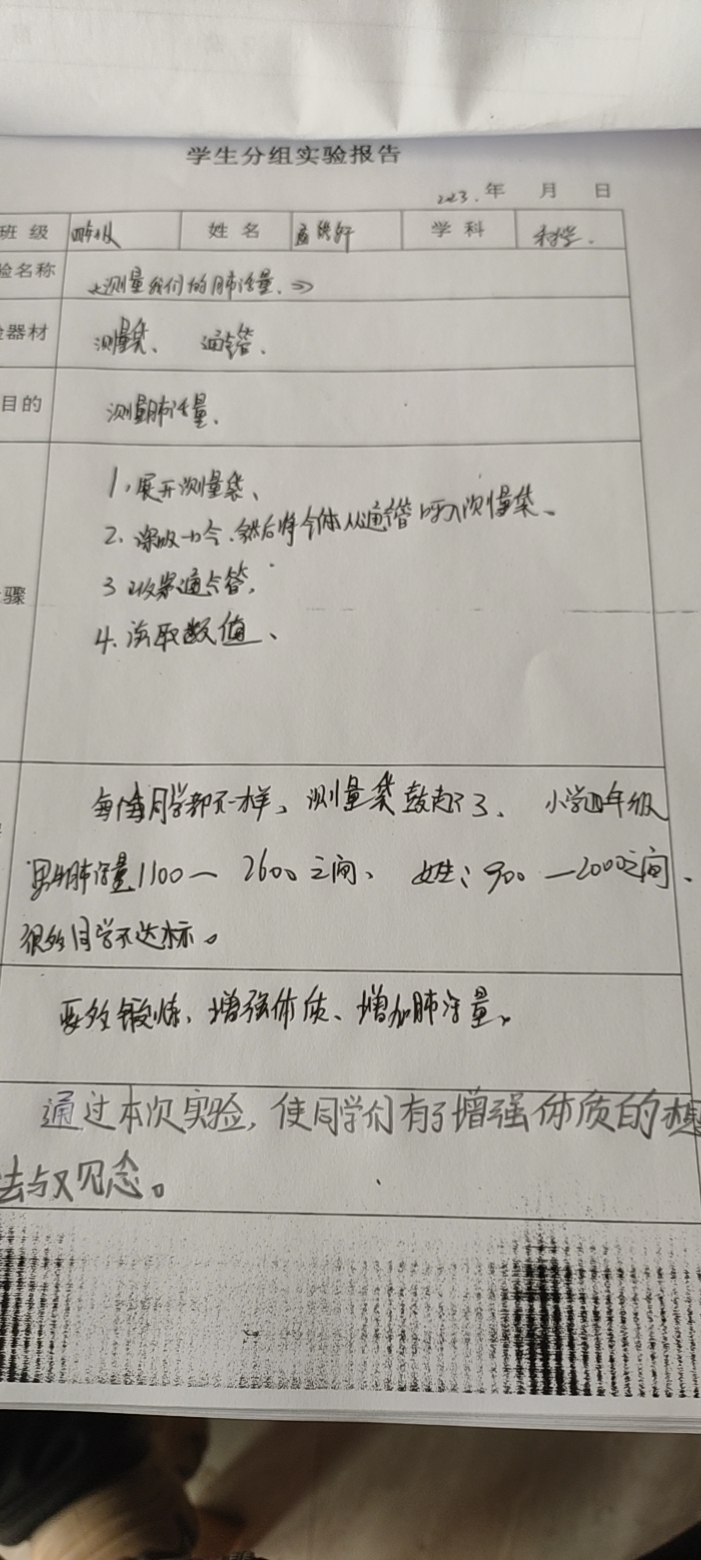 学生分组实验报告
2023.年 月 日
班级 四年级 姓名 学科 科学.
验名称 《测量我们的肺活量.》
器材 测量袋、 通气管.
目的 测量肺活量.
1,展开测量袋、
2.深吸一口气.然后将气体从通气管呼入测量袋、
骤
3 通气管.
4.读取数值、
每位同学都不一样、测量袋鼓起了、 小学四年级
男生肺活量1100一 2600之间、 女性:900 一2000之间.
很多同学不达标。
要多锻炼,增强体质、增加肺活量。
通过本次实验,使同学们有了增强体质的想
法与观念。